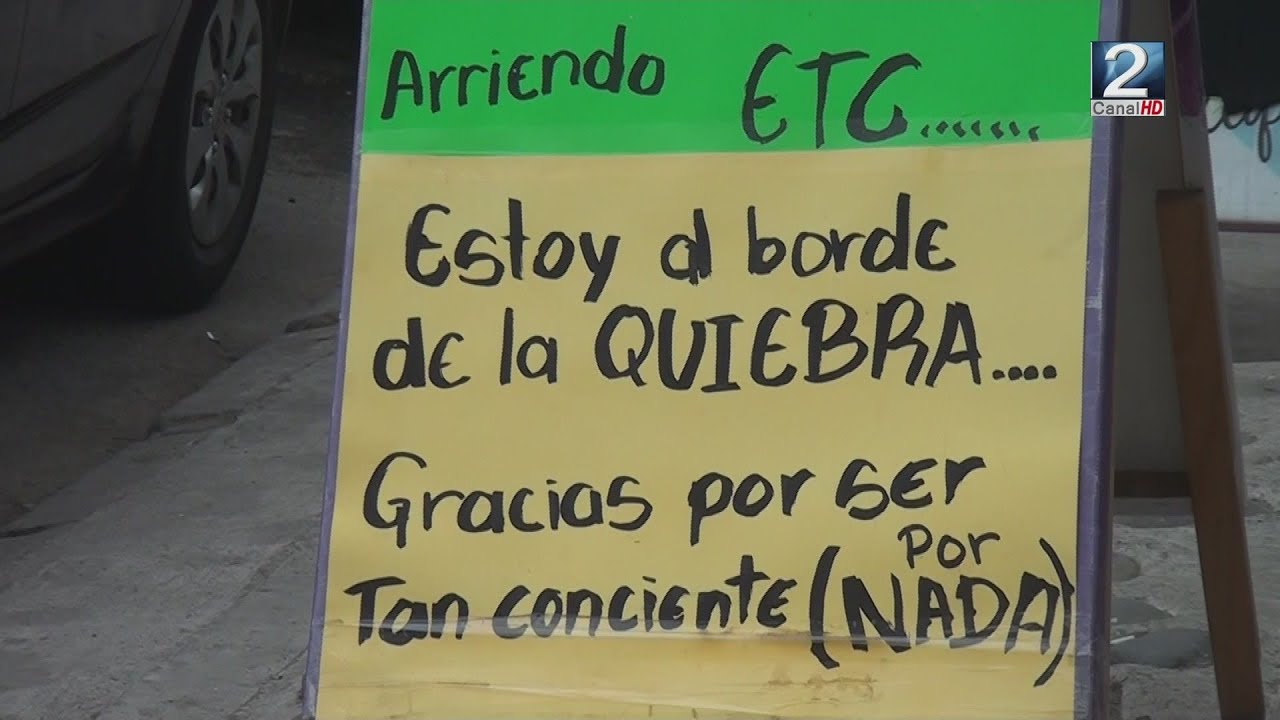 2
CanalHD
Arriendo ETC........
Estoy al borde
de la QUIEBRA....
Gracias por ser
Tan conciente (POR NADA)